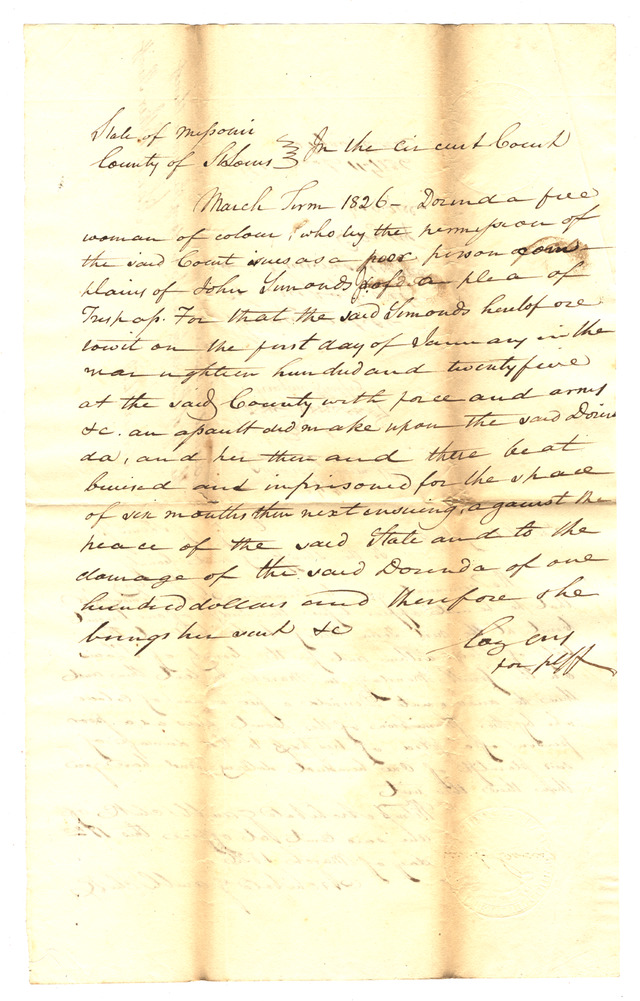 State of Missouri
County of St Louis } In the Circuit Court
March Term 1826 – Dorinda a free
woman of colour, who by the permission of
the said Court sues as a poor person com
plains of John Simonds Jr of a plea of
Trespass. For that the said Simonds heretofore
towit on the first day of January in the
year eighteen hundred and twenty five
at the said County with force and arms
&c. an assault did make upon the said Dorin
da, and her then and there beat
bruised and imprisoned for the space
of six months then next ensuing, against the
peace of the said State and to the
damage of the said Dorinda of one
hundred dollars and therefore she
brings her suit &c
Cozens
for plff